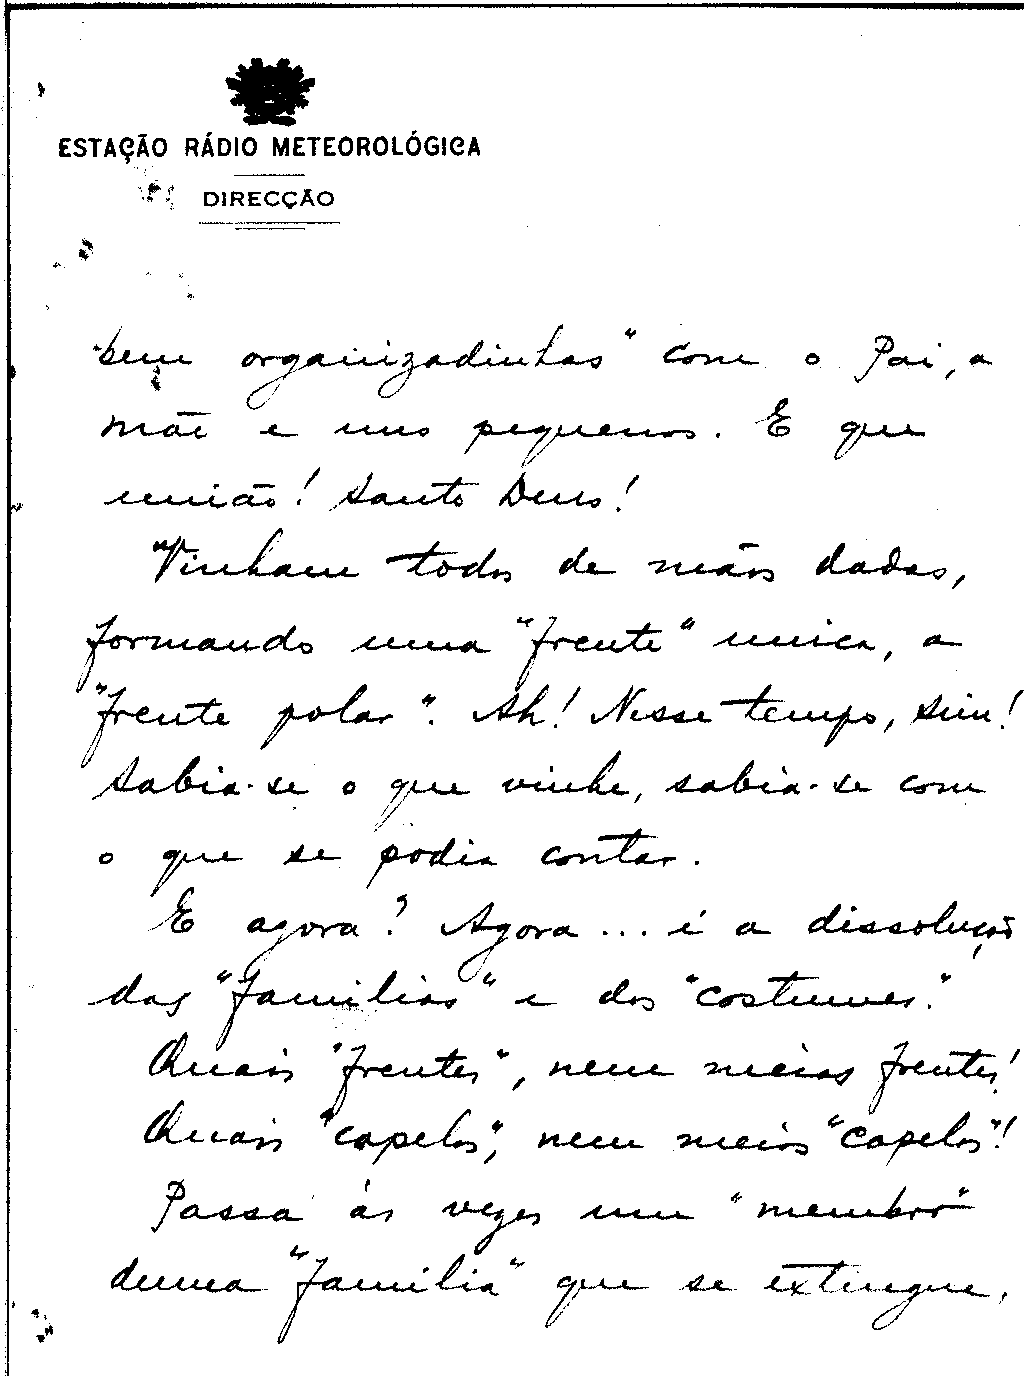 ESTAÇÃO RÁDIO METEOROLÓGICA
DIRECÇÃO
"bem organizadinhas" com o Pai, a
mãe e uns pequenos. E que
união! Santo Deus!
Vinham todos de mãos dadas,
formando uma "frente" unica, a
"frente polar". Ah! Nesse tempo, sim!
Sabia-se o que vinha, sabia-se com
o que se podia contar.
E agora? Agora... é a dissolução
das "familias" e dos "costumes".
Quais "frentes", nem meias frentes!
Quais "capelos", nem meios "capelos"!
Passa às vezes um "membro"
duma "familia" que se extingue,